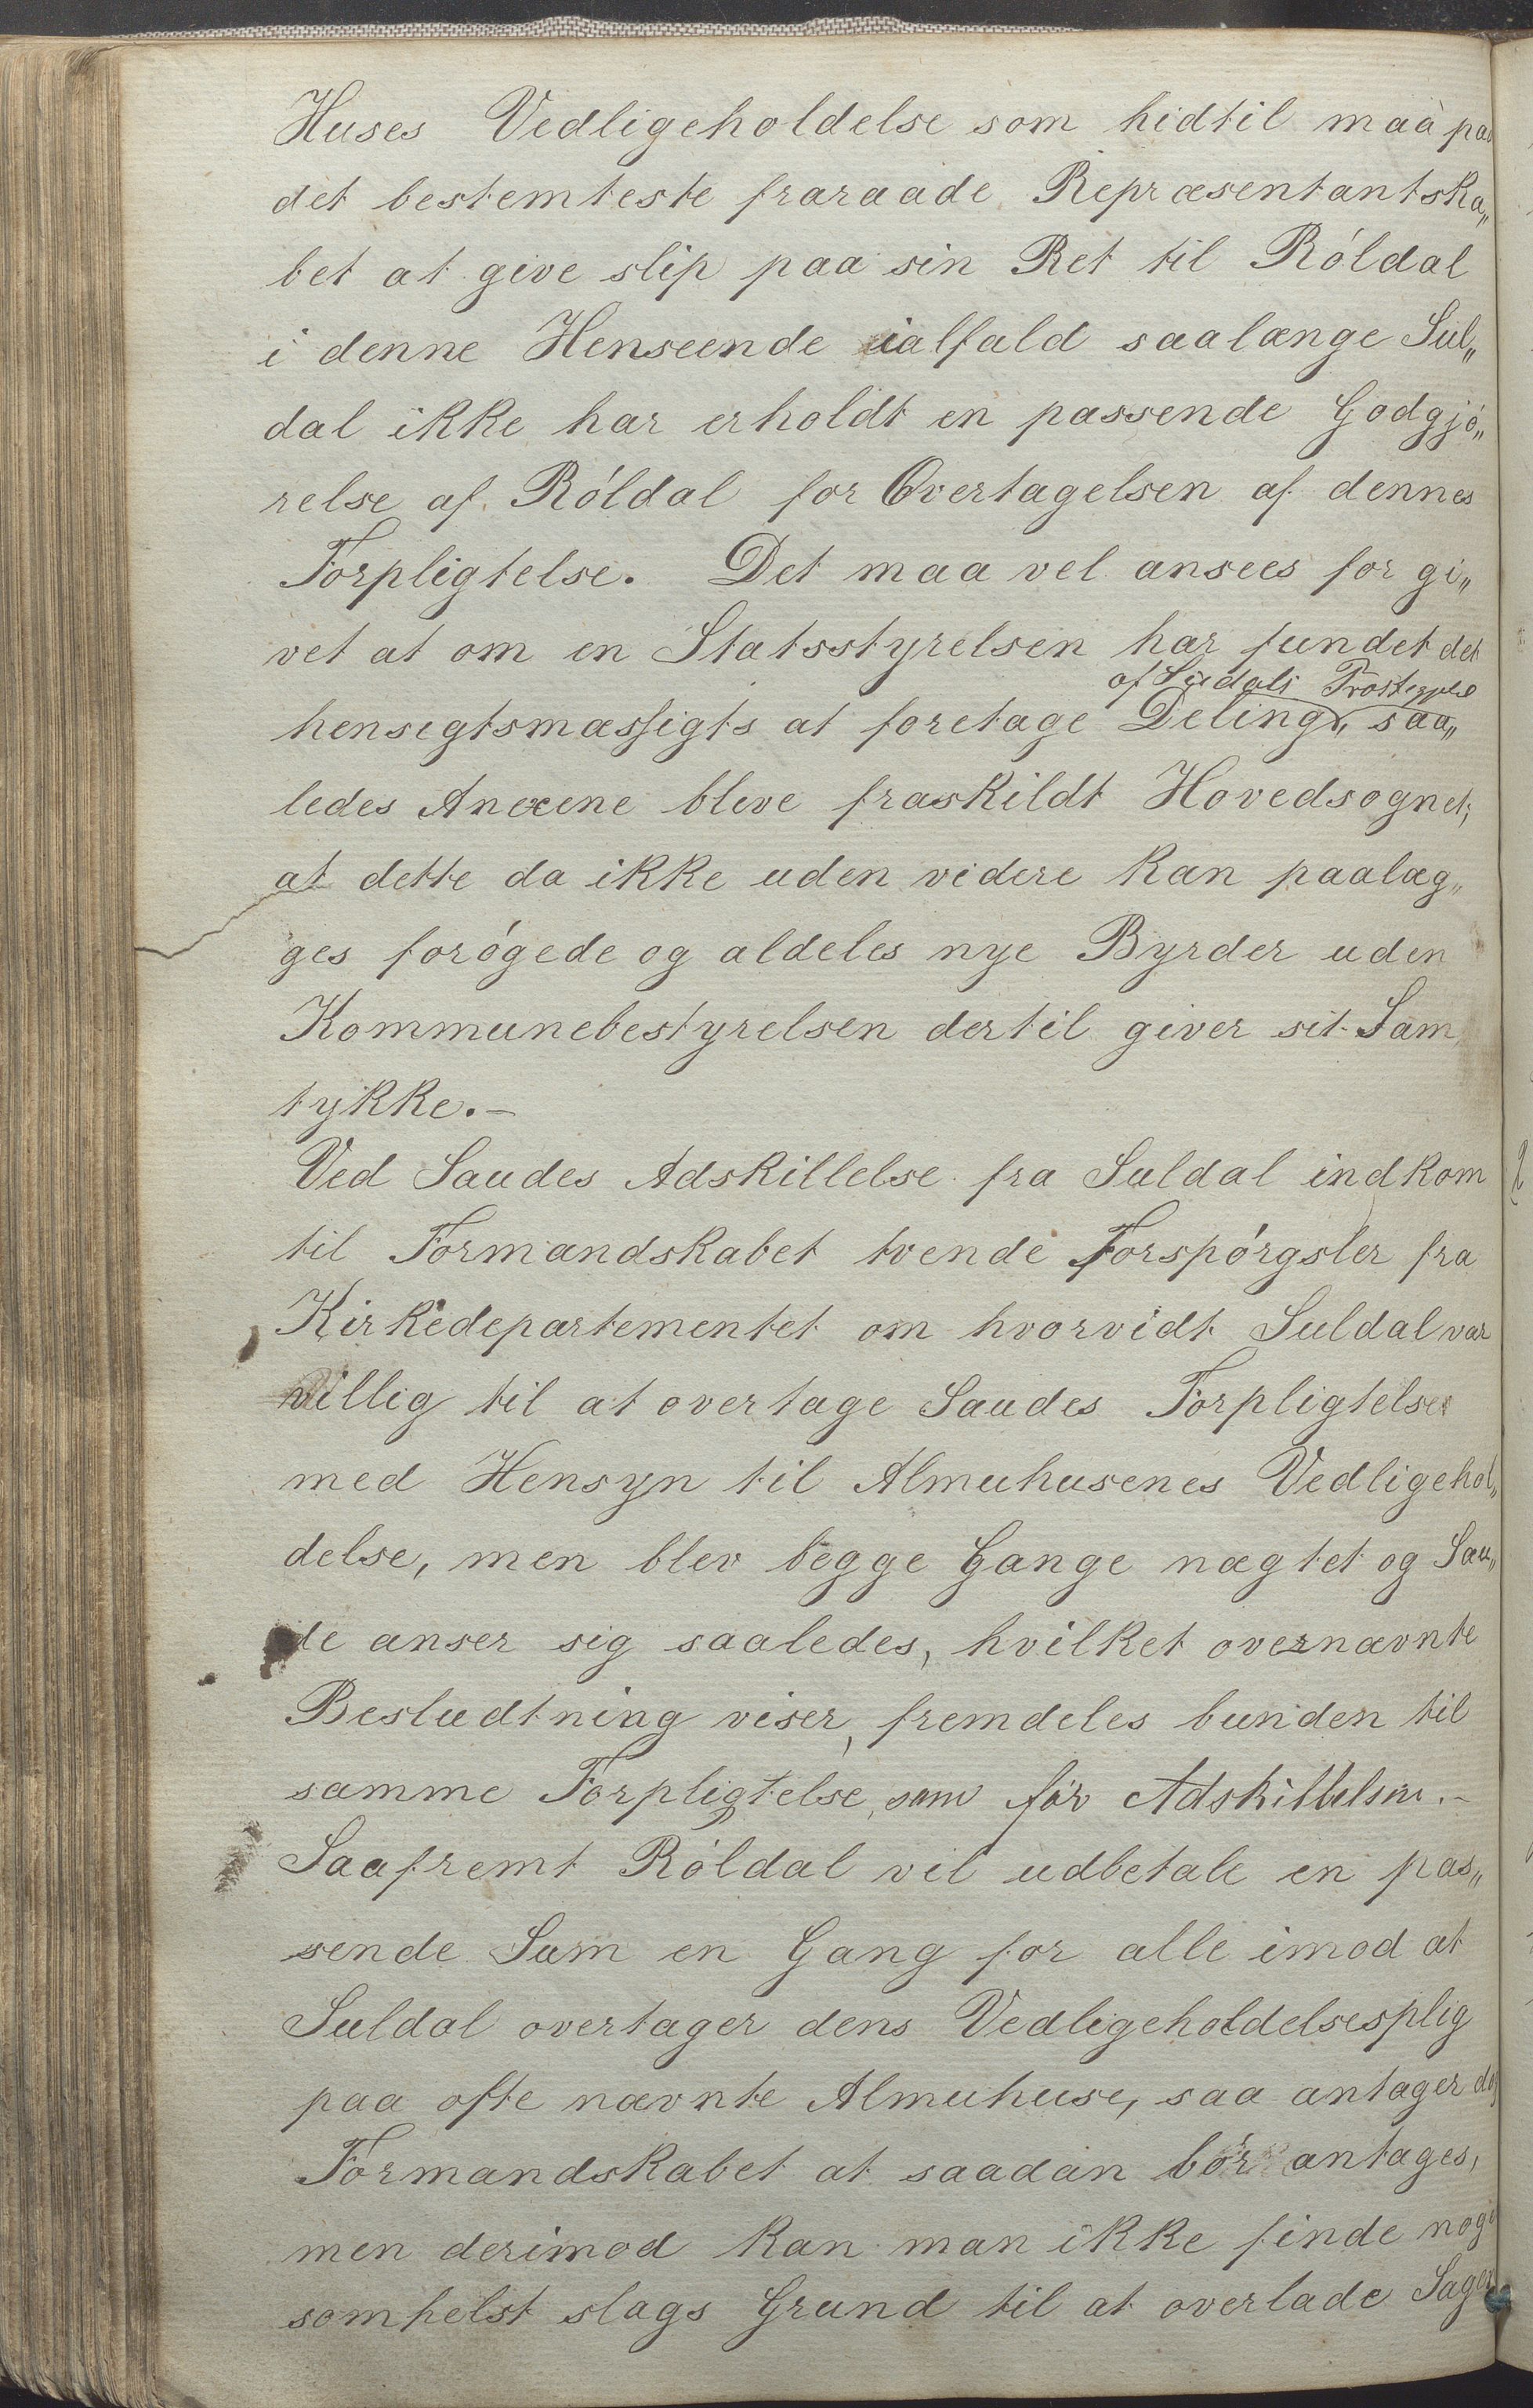 Huses Vedligeholdelse som hidtil maa paa
det bestemteste fraraade Repræsentantska„
bet at give slip paa sin Ret til Róldal
i denne Henseende ialfald saalænge Sul„
dal ikke har erholdt en passende Godgjó„
relse af Róldal for Overtagelsen af dennes
Forpligtelse. Det maa vel ansees for gi„
vet at om en Statsstyrelsen har fundet det
af Suldals Prostegjeld
hensegtsmæssigts at foretage Deling, saa„
ledes Anexene bleve fraskildt Hovedsognet,
at dette da ikke uden videre kan paalæg„
ges forógede og aldeles nye Byrder uden
Kommunebestyrelsen dertil giver sit Sam
tykke.-
Ved Saudes Adskillelse fra Suldal indkom
til Formandskabet tvende Forspórgsler fra
Kirkedepartementet om hvorvidt Suldal var
villig til at overtage Saudes Forpligtelser
med Hensyn til Almuhusenes Vedligehol„
delse, men blev begge Gange nægtet og Sau„
de anser sig saaledes, hvilket overnævnte
Besludtning viser, fremdeles bunden til
samme Forpligtelse, som för Adskillelsen.-
Saafremt Róldal vil udbetale en pas„
sende Sum en Gang for alle imod at
Suldal overtager dens Vedligeholdelsesplig
paa ofte nævnte Almuhuse, saa antager
Formandskabet at saadan bór antages,
men derimod kan man ikke finde noge
somhelst slags Grund til at overlade Sagen